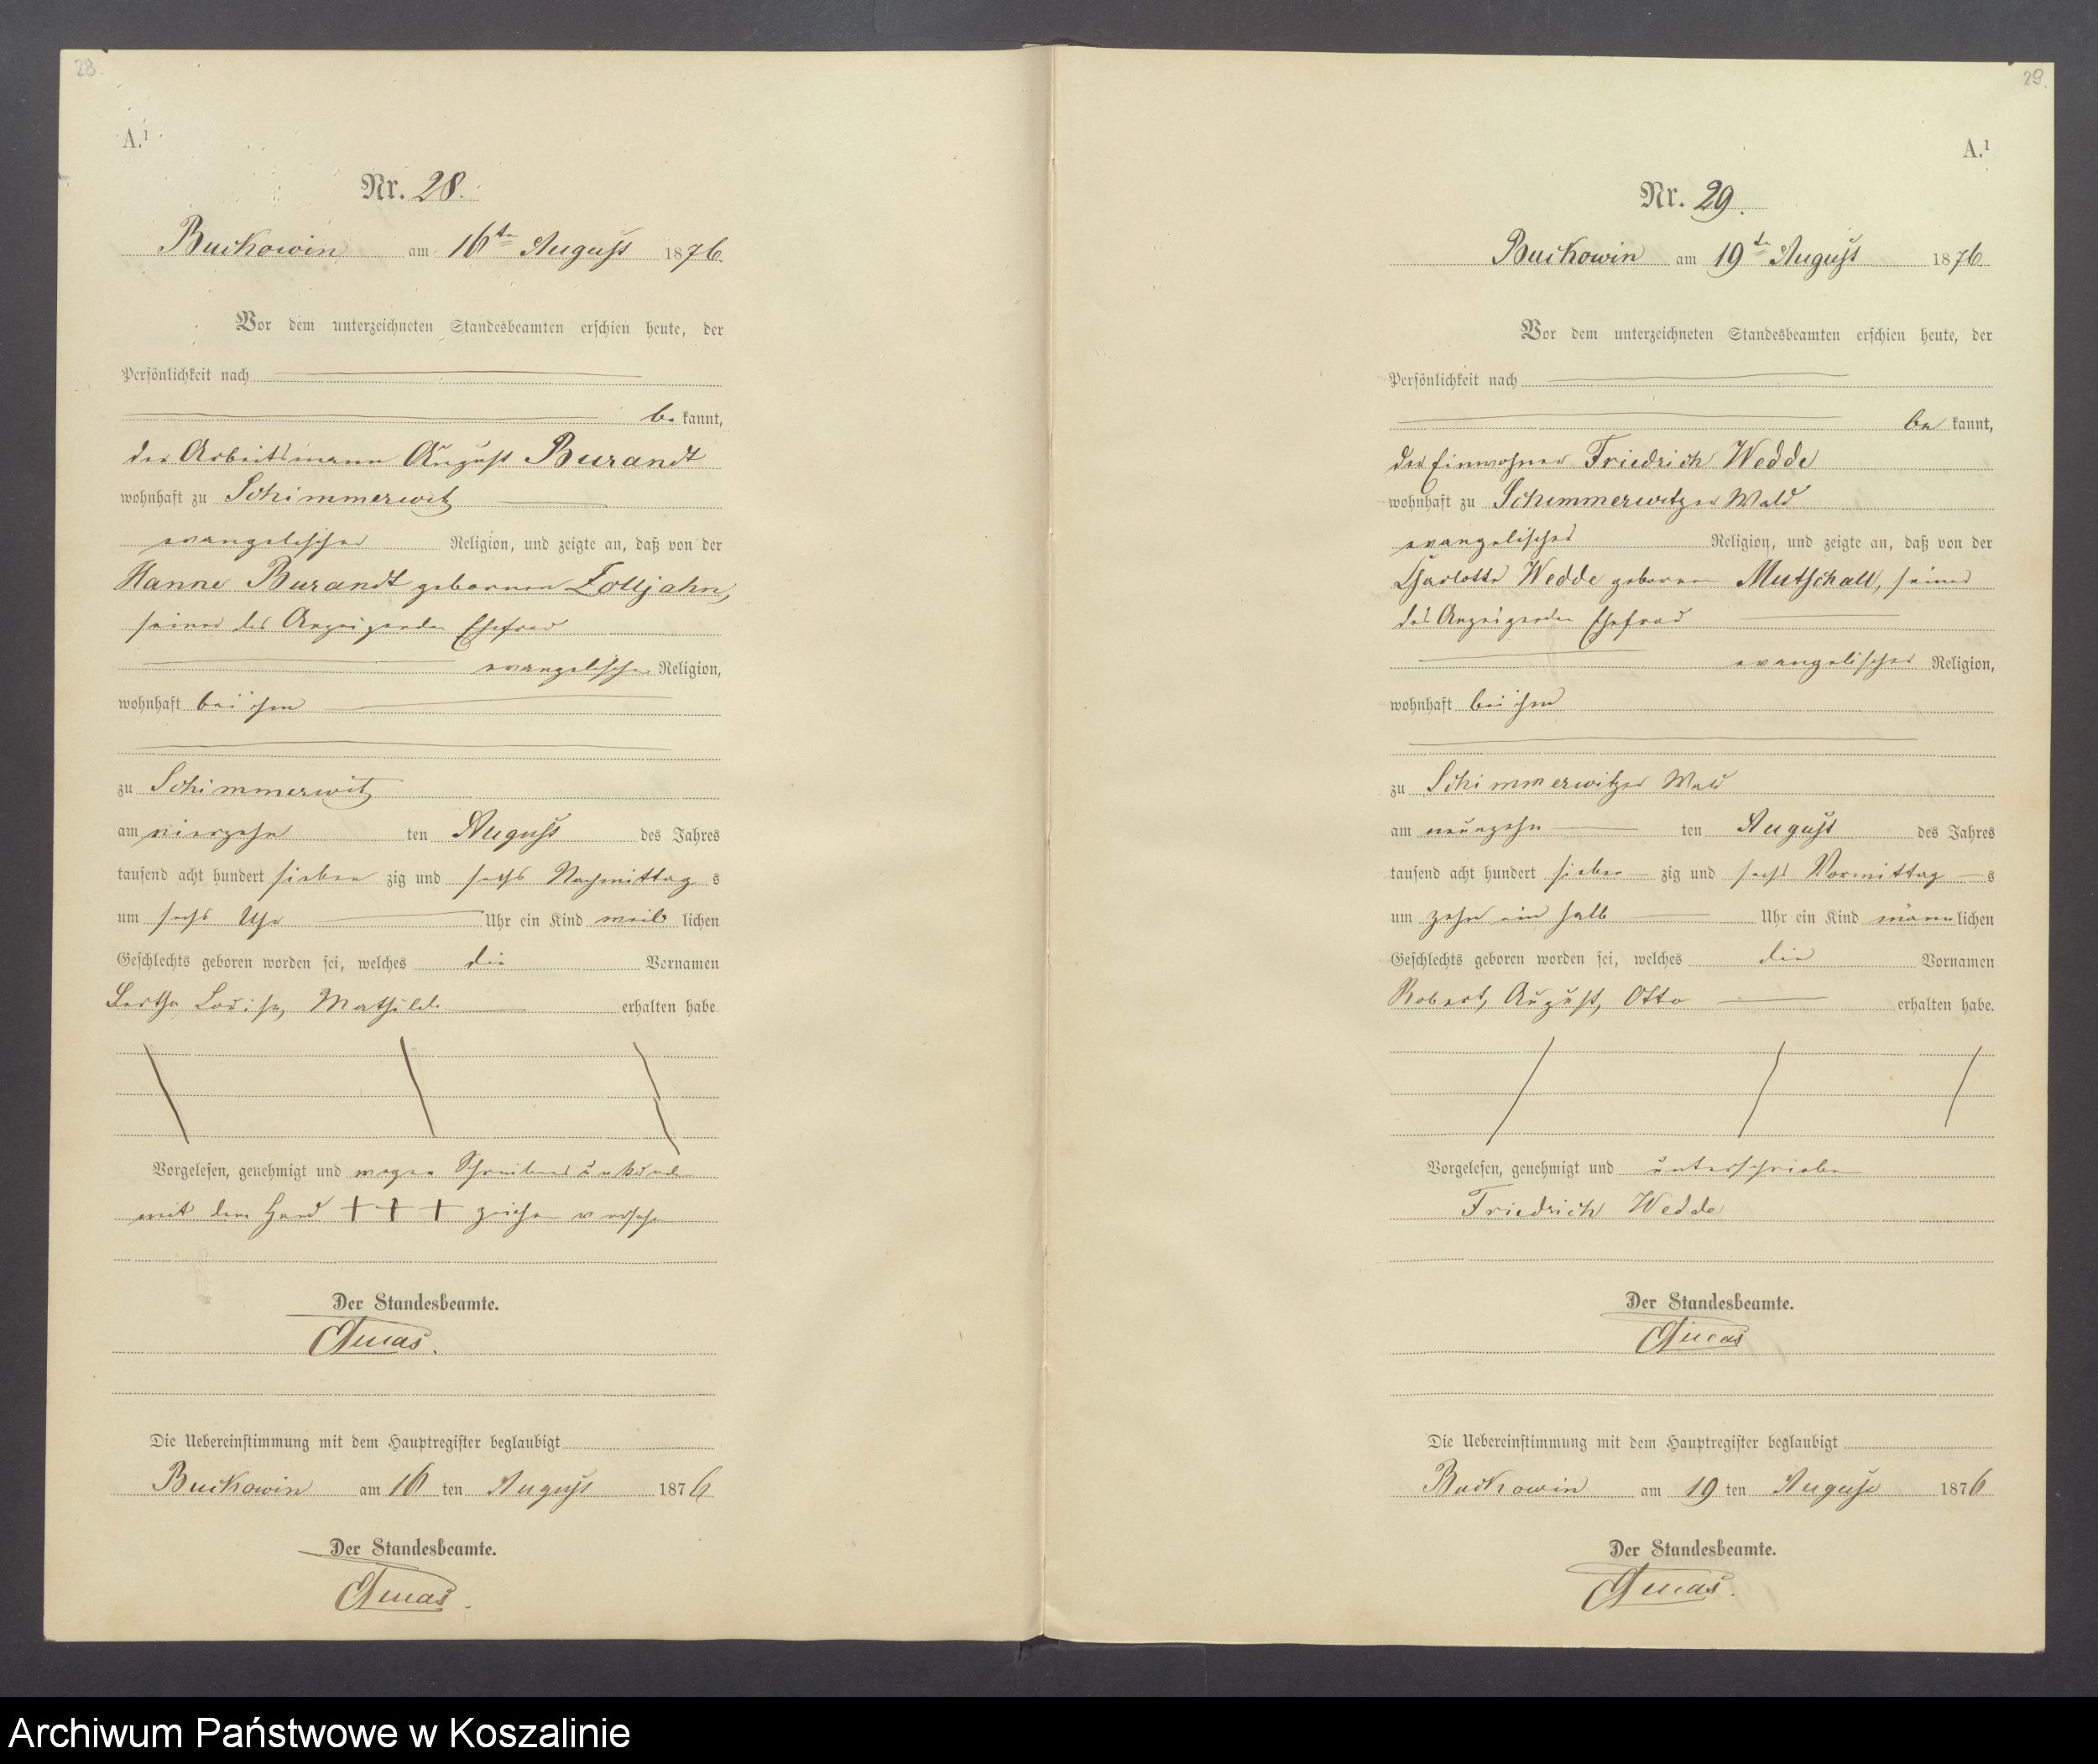 28.
A.¹
Nr. 28.
Buckowin am 16ten August 1876
Vor dem unterzeichneten Standesbeamten erschien heute, der
Persönlichkeit nach
be kannt,
der Arbeitsmann August Burandt
wohnhaft zu Schimmerwitz
evangelischer Religion, und zeigte an, daß von der
Hanne Burandt gebornen Zolljahn,
seiner des Anzeigenden Ehefrau
evangelischer Religion,
wohnhaft bei ihm
zu Schimmerwitz
am vierzehn ten August des Jahres
tausend acht hundert sieben zig und sechs Nachmittag s
um sechs Uhr Uhr ein Kind weib lichen
Geschlechts geboren worden sei, welches die Vornamen
Bertha Louise, Mathilde erhalten habe
Vorgelesen, genehmigt und wegen Schreibensunkunde
mit dem Hand +++ zeichen versehen
Der Standesbeamte.
Die Uebereinstimmung mit dem Hauptregister beglaubigt
Buckowin am 16 ten August 1876
Der Standesbeamte.
29.
A.¹
Nr. 29.
Buckowin am 19ten August 1876
Vor dem unterzeichneten Standesbeamten erschien heute, der
Persönlichkeit nach
be kannt,
der Einwohner Friedrich Wedde
wohnhaft zu Schimmerwitzer Wald
evangelischer Religion, und zeigte an, daß von der
Charlotte Wedde geboren Mutschall, seiner
des Anzeigenden Ehefrau
evangelischer Religion,
wohnhaft bei ihm
zu Schimmerwitzer Wald
am neunzehn ten August des Jahres
tausend acht hundert sieben zig und sechs Vormittag s
um zehn ein halb Uhr ein Kind männ lichen
Geschlechts geboren worden sei, welches die Vornamen
Robert, August, Otto erhalten habe.
Vorgelesen, genehmigt und unterschrieben
Friedrich Wedde
Der Standesbeamte.
Die Uebereinstimmung mit dem Hauptregister beglaubigt
Buckowin am 19 ten August 1876
Der Standesbeamte.
Archiwum Państwowe w Koszalinie